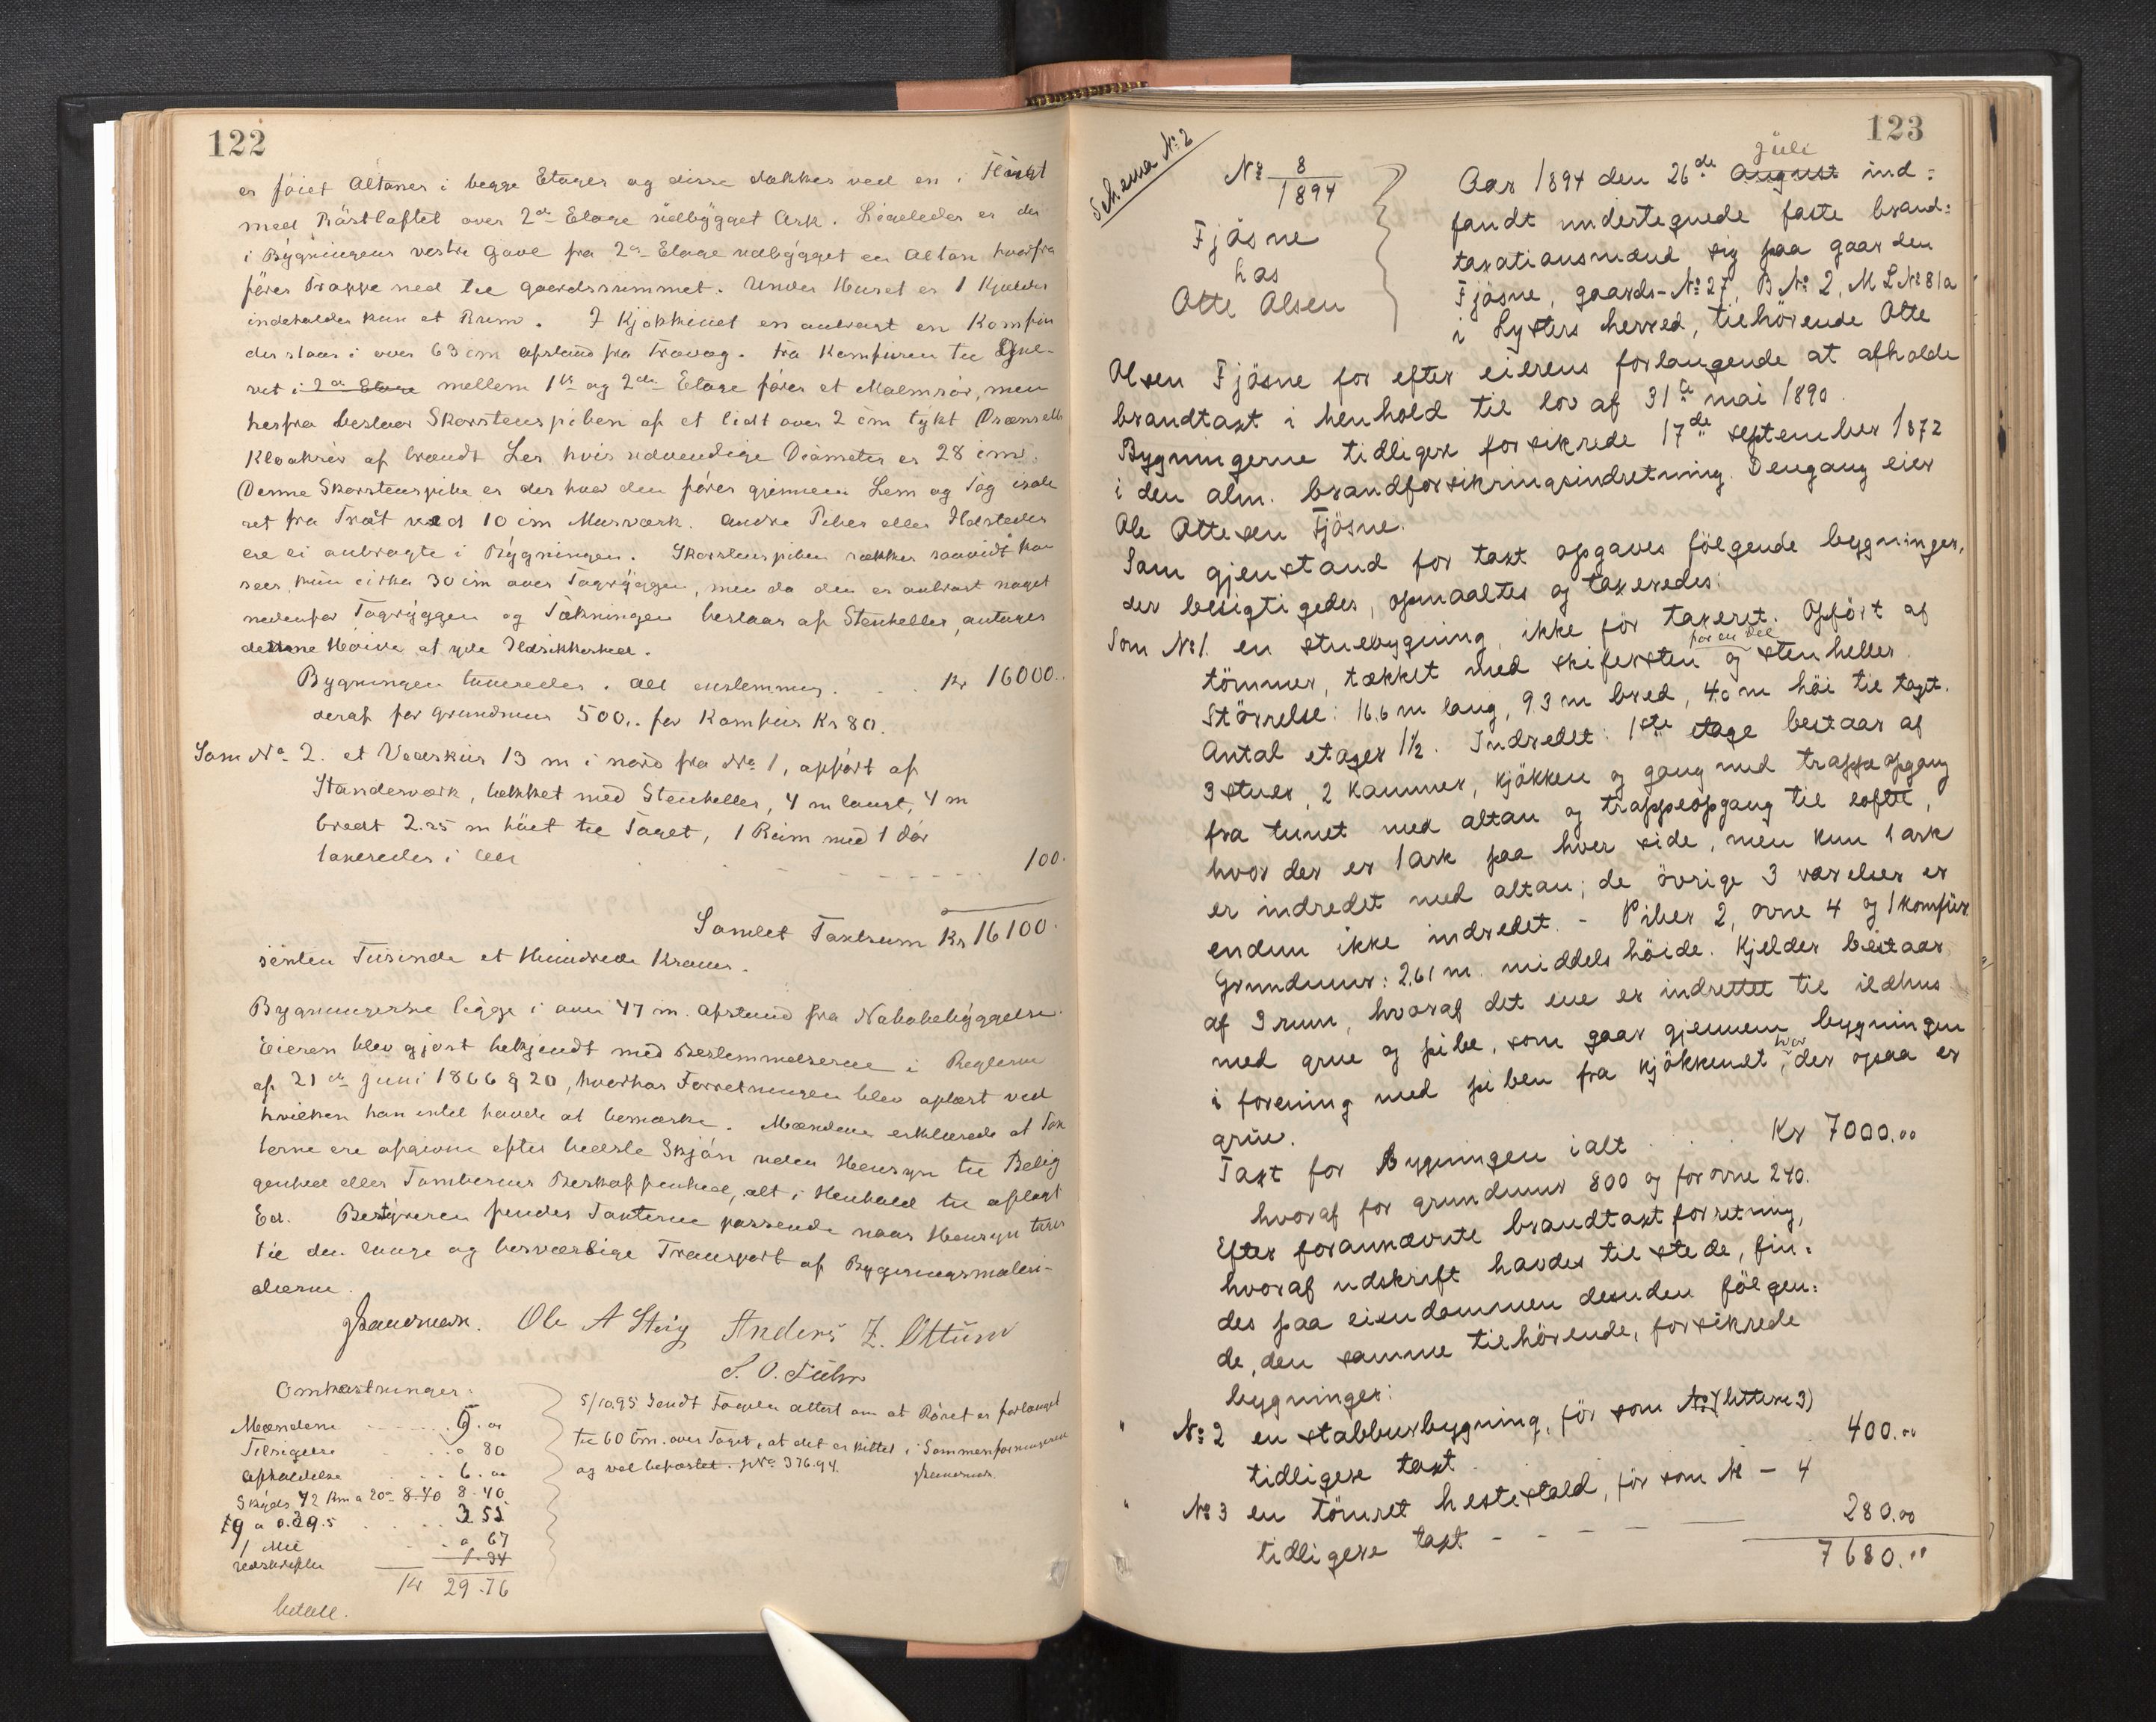 122
er föiet Altaner i begge Etager og disse dækkes ved en i Flugt
med Röstloftet over 2den Etage udbygget Ark. Ligeledes er der
i Bygningens vestre Gavl fra 2den Etage udbygget en Altan hvorfra
förer Trappe ned til Gaardsrummet. Under Huset er 1 Kjælder
indeholder kun et Rum. I Kjøkkenet en anbragt en Komfur
der staar i over 63 cm afstand fra Trævæg. Fra Komfuren til Gul-
vet i 2den Etage mellem 1ste og 2den Etage förer et Malmrör, men
herfra bestaar Skorstenspiben af et lidt over 2 cm tykt
Kloakrör af brændt Ler hvis udvendige Diameter er 28 cm.
Denne Skorstenspibe er der hvor den förer gjennem Lem og Tag isole
ret fra Træt ved 10 cm Murværk. Andre Piber eller Ildsteder
ere ei anbragte i Bygningen. Skorstenspiben rækker saavidt kan
sees kun cirka 30 cm over Tagryggen, men da den er anbragt noget
nedenfor Tagryggen og Tækningen bestaar af Stenheller, antages
denne Höide at yde Ildsikkerhed.
Bygningen taxeredes. Alt iberegnet Kr 16000..
deraf for Grundmur 500,. for Komfur Kr 80.
Som No 2. et Vedskur 13 m i nord fra No 1, opfört af
Standerværk, tækket med Stenheller, 4 m langt, 4 m
bredt 2.25 m höit til Taget, 1 Rum med 1 dör
taxeredes i alt 100.
Samlet Taxtsum Kr 16100.
sexten Tusinde et Hundrede Kroner.
Bygningerne ligge i over 47 m. Afstand fra Nabobebyggelse.
Eieren blev gjort bekjendt med Bestemmelserne i Reglerne
af 21de Juni 1866 § 20, hvorhos Forretningen blev oplæst ved
hvilken han intet havde at bemærke. Mændene erklærede at Tax
terne ere afgivne efter bedste Skjön uden Hensyn til Belig
genhed eller Tomternes Beskaffenhed, alt i Henhold til aflagt
Ed. Bestyreren fandt Taxterne passende naar Hensyn tages
til den lange og besværlige Transport af Bygningsmateri-
alierne.
Ole A Steig Anders Z. Ottum
Omkostninger:
Mændene 9.00
Tilsigelse 0 80
Afholdelse 6.00
Skyds 42 Km a 20 8.40 8.40
19 a 0.29.5 3.55
1 Mil 0 67
Udskrifter 1.34
Kr 29.76
betalt.
5/10.95 Sendt Fogden attest om at Röret er forlænget
til 60 Cm. over Taget, at det er kittet i Sammenföiningerne
og vel befæstet. JNo 376.94.
123
Schema No 2
No 8/1894
Fjösne
hos
Otte Olsen
Aar 1894 den 26de August Juli ind=
fandt undertegnede faste brand=
taxationsmænd sig paa gaarden
Fjösne, gaards-No 27, B No 2, M L No 81a
i Lysters herred, tilhörende Otte
Olsen Fjösne for efter eierens forlangende at afholde
brandtaxt i henhold til lov af 31te mai 1890.
Bygningerne tidligere forsikrede 17de september 1872
i den alm. brandforsikringsindretning. Dengang eier
Ole Ottesen Fjösne.
Som gjenstand for taxt opgaves fölgende bygninger,
der besigtigedes, opmaaltes og taxeredes:
Som No 1. en stuebygning, ikke för taxeret. Opfört af
tömmer, tækket med skifersten og for en del stenheller.
Störrelse: 16.6 m lang, 9.3 m bred, 4.0 m höi til taget.
Antal etager 1½. Indredet: 1ste etage bestaar af
3 stuer, 2 kammer, kjökken og gang med trappeopgang
fra tunet med altan og trappeopgang til loftet,
hvor der er 1 ark paa hver side, men kun 1 ark
er indredet med altan; de övrige 3 værelser er
endnu ikke indredet. - Piber 2, ovne 4 og 1 komfür
Grundmur: 2.61 m. middels höide. Kjelder bestaar
af 3 rum, hvoraf det ene er indrettet til ildhus
med grue og pibe, som gaar gjennem bygningen
i forening med piben fra kjökkenet, hvor der ogsaa er
grue.
Taxt for Bygningen ialt Kr 7000.00
hvoraf for grundmur 800 og for ovne 240.
Efter forannævnte brandtaxtforretning,
hvoraf udskrift havdes til stede, fin=
des paa eiendommen desuden fölgen=
de, den samme tilhörende, forsikrede
bygninger:
" No 2 en stabbursbygning, för som No (littere 3)
tidligere taxt 400.00
" No 3 en tömret hestestald, för som No - 4
tidligere taxt 280.00
7680.00